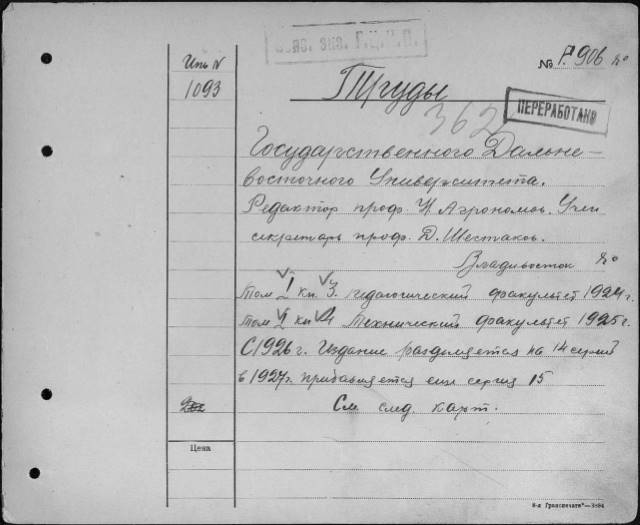 Обяз. экз. Г.Ц.К.П.
Инв N
1093
№ P. 906
Труды
ПЕРЕРАБОТАНО
362
Государственного Дальне-
восточного Университета.
Редактор проф. Н Агрономов. Учен
секретарь проф. Д. Шестаков.
Владивосток
Том I кн. 3. педагогический факультет 1924г.
Том V кн 4 Технический факультет 1925г.
С 1926 г. Издание разделяется на 14 серий
в 1927г. прибавляется еще серия 15
См след. карт.
Цена